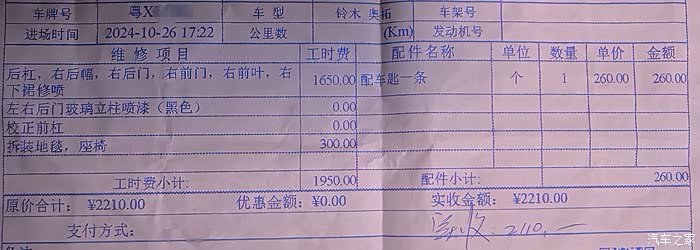 车牌号 粤X 车 型 铃木 奥拓 车架号
进场时间 2024-10-26 17:22 公里数 (Km) 发动机号
维 修 项 目 工时费 配 件 名 称 单位 数量 单价 金额
后杠，右后幅，右后门，右前门，右前叶，右 1650.00 配车匙一条 个 1 260.00 260.00
下裙修喷
左右后门玻璃立柱喷漆（黑色） 0.00
校正前杠 0.00
拆装地毯，座椅 300.00
工时费小计: 1950.00 配件小计: 260.00
原价合计: ¥2210.00 优惠金额: ¥0.00 实收金额: ¥2210.00
支付方式: 实收: 2110,—
汽车之家